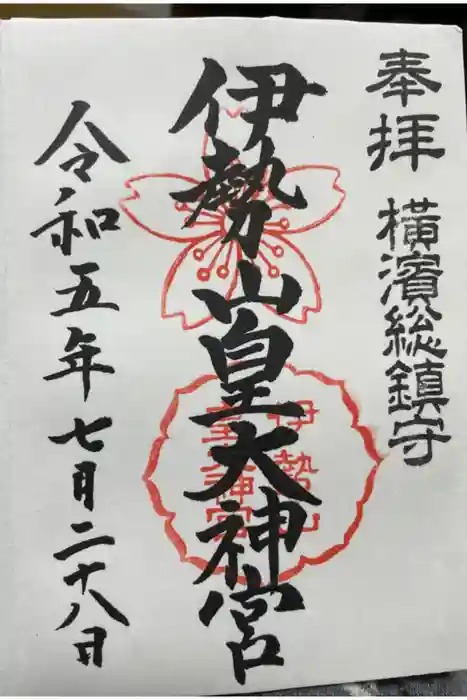 奉拝
横濱総鎮守
伊勢山皇大神宮
伊勢山
皇大神宮
令和五年七月二十八日